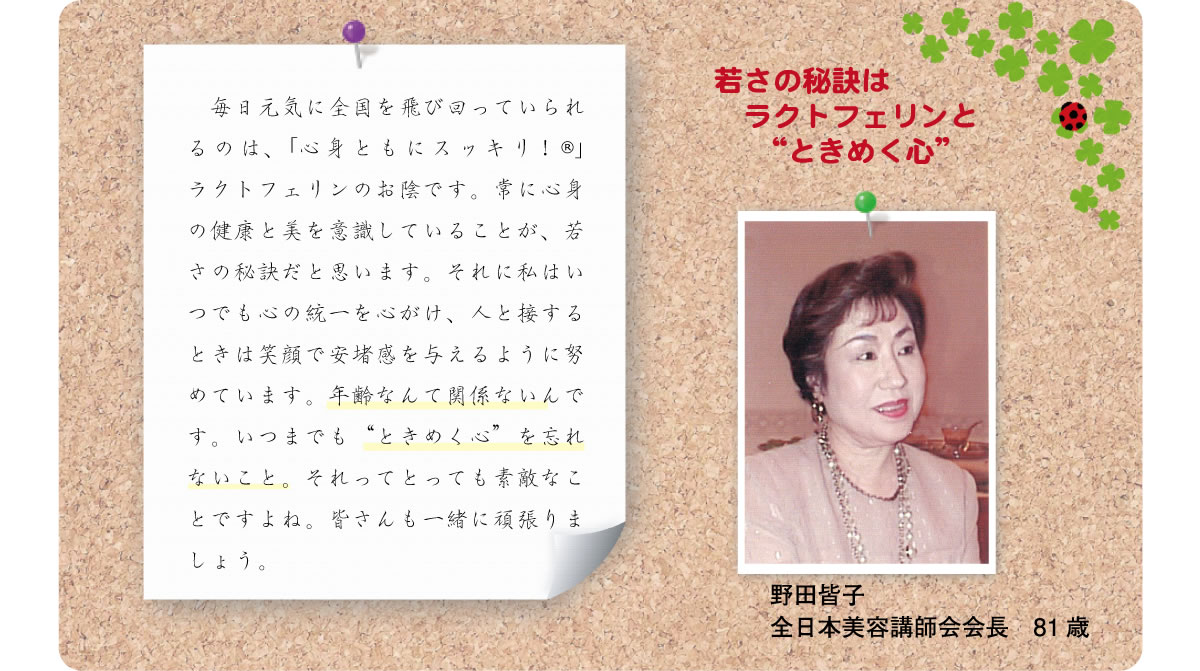 毎日元気に全国を飛び回っていられ
るのは、「心身ともにスッキリ！®」
ラクトフェリンのお陰です。常に心身
の健康と美を意識していることが、若
さの秘訣だと思います。それに私はい
つでも心の統一を心がけ、人と接する
ときは笑顔で安堵感を与えるように努
めています。年齢なんて関係ないんで
す。いつまでも“ときめく心”を忘れ
ないこと。それってとっても素敵なこ
とですよね。皆さんも一緒に頑張りま
しょう。
若さの秘訣は
ラクトフェリンと
“ときめく心”
野田皆子
全日本美容講師会会長　81歳